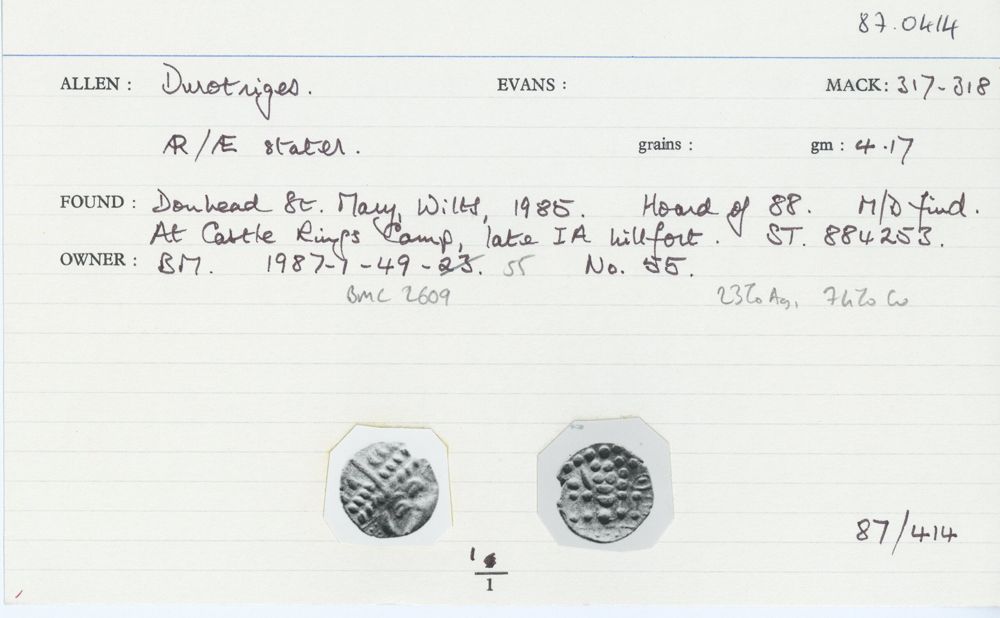 87.0414
ALLEN : Durotriges. EVANS : MACK: 317-318
ÆR/Æ stater. grains : gm : 4.17
FOUND : Donhead St. Mary, Wilts, 1985. Hoard of 88. M/D find.
At Castle Rings Camp, late IA hillfort. ST. 884253.
OWNER : BM. 1987-7-49-23. 55 No. 55.
BMC 2609 23% Ag, 74% Cu
87/414
1
1